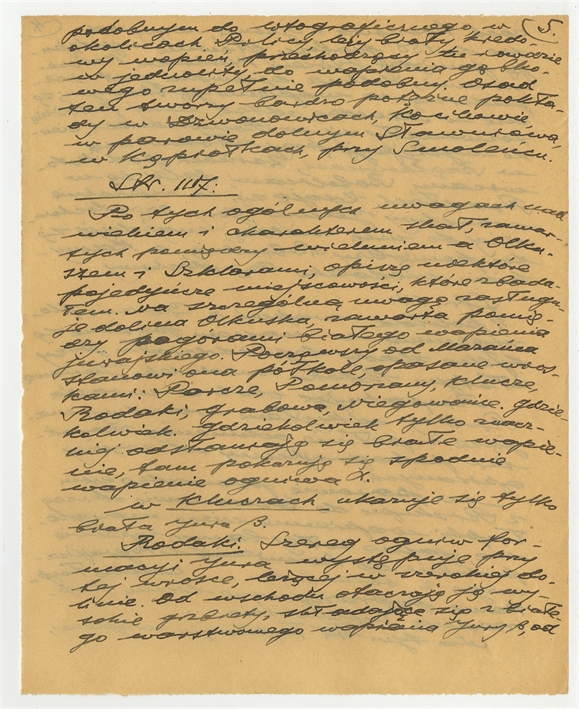 podobnym do litograficznego w 5.
okolicach Policy leży biały kredo-
wy wapień, przechodzący tu równie
w jednolity do wapienia gąbko-
wego zupełnie podobny. Osad
ten tworzy bardzo potężne pokła-
dy w Dzwonowicach, Kocikowie
w parowie dolnym Sławniowa,
w Kąpiołkach, przy Smoleniu.
Str. 117.
Po tych ogólnych uwagach nad
wiekiem i charakterem skał, zawar-
tych pomiędzy Wieluniem a Olku-
szem i Szklarami, opiszę niektóre
pojedyńcze miejscowości, które zbada-
łem. Na szczególną uwagę zasługu-
je dolina Olkuska, zawarta pomię-
dzy pagórami białego wapienia
jurajskiego. Począwszy od
stanowi ona półkole, opasane wios-
kami: Parcze, Pomorzany, Klucze,
Rodaki, Grabowa, Niegowonice. Gdzie-
kolwiek. Gdziekolwiek tylko
odsłaniają się białe wapie-
nie, tam pokazują się spodnie
wapienie ogniwa α.
w Kluczach ukazuje się tylko
biała Jura β.
Rodaki. Szereg ogniw for-
macyi Jura występuje przy
tej wiosce, leżącej w szerokiej do-
linie. Od wschodu otaczają ją wy-
sokie grzbiety, składające się z białe-
go warstwowego wapienia Jury β, od